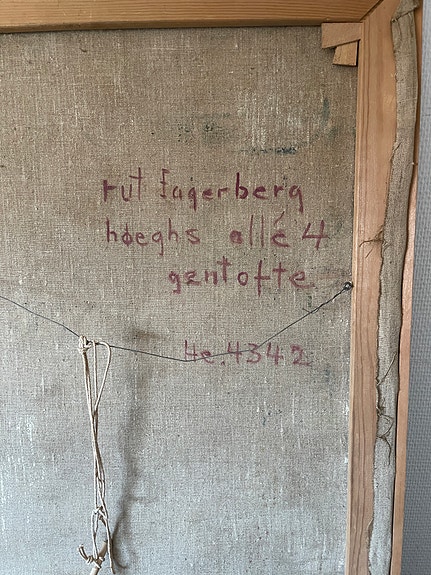 rut fagerberg
høeghs allé 4
gentofte
4e.4342